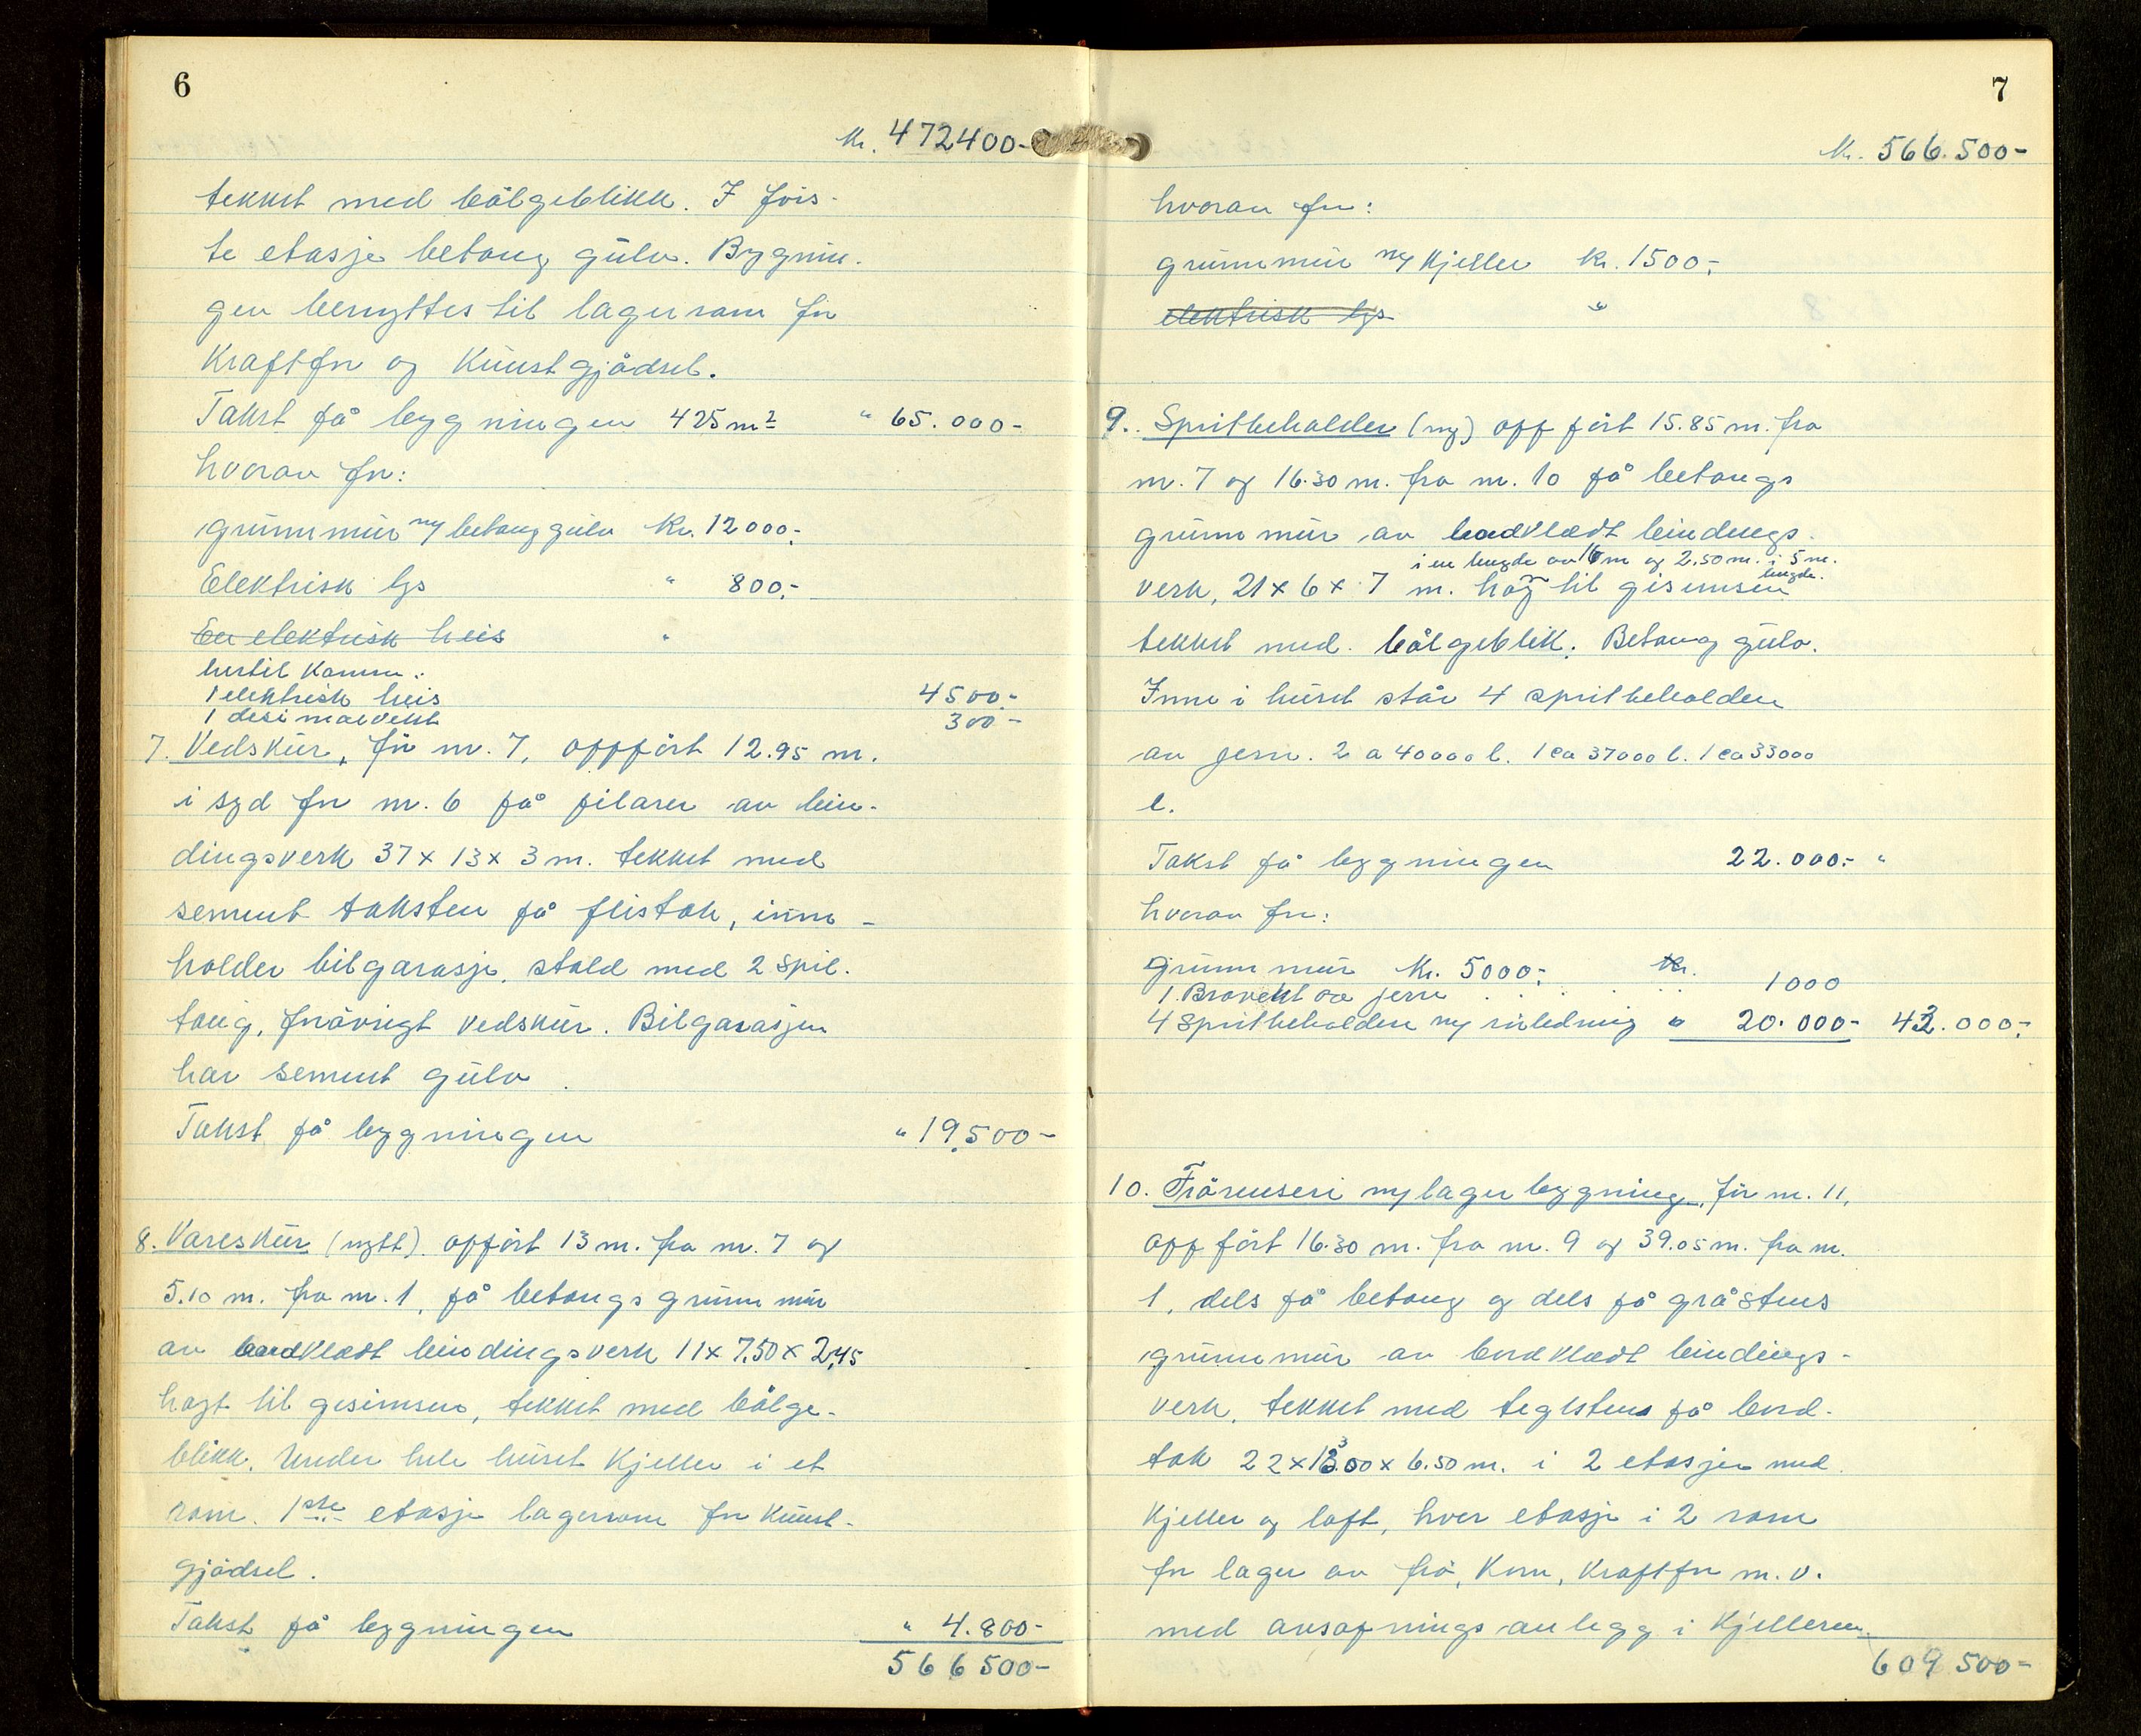 6
Kr. 472400-
tekket med bölgeblikk. I förs-
te etasje betong gulv. Bygnin-
gen benyttes til lagerrom for
Kraftfor og Kunstgjödsel.
Takst på bygningen 425 m² " 65.000-
hvorav for:
grunnmur og betonggulv Kr. 12000.-
Elektrisk lys " 800.-
En elektrisk heis "
hertil kommer:
1 elektrisk heis 4500.-
1 desimalvekt 300.-
7. Vedskur, för nr. 7, oppfört 12.95 m.
i syd for nr. 6 på pilarer av bin-
dingsverk 37 x 13 x 3 m. tekket med
sement taksten på flistak, inne-
holder bilgarasje, stald med 2 spil-
toug, forövrigt vedskur. Bilgarasjen
har sement gulv.
Takst på bygningen " 19.500-
8. Vareskur (nytt) oppfört 13 m. fra nr. 7 og
5.10 m. fra nr. 1, på betongs grunnmur
av bordklædt bindingsverk 11 x 7.50 x 2,45
høgt til gesimsen, tekket med bölge-
blikk. Under hele huset Kjeller i et
rom. 1ste etasje lagerrom for Kunst-
gjödsel.
Takst på bygningen " 4.800-
566500-
7
Kr. 566.500-
hvorav for:
grunnmur og Kjeller Kr. 1500.-
elektrisk lys "
9. Spritbeholder (ny) oppfört 15.85 m. fra
nr. 7 og 16.30 m. fra nr. 10 på betongs
grunnmur av bordklædt bindings-
i en lengde av 16 m og 2.50 m. i 5 m.
lengde.
verk, 21 x 6 x 7 m. høg til gisimsen
tekket med bölgeblik. Betong gulv.
Inne i huset står 4 spritbeholdere
av jern. 2 a 40000 l. 1 ca 37000 l. 1 ca 33000
l.
Takst på bygningen 22.000.- "
hvorav for:
grunnmur Kr. 5000.- Kr.
1 Brovekt av jern 1000
4 Spritbeholdere og rörledning " 20.000- 43.000.-
10. Frörenseri og lagerbygning, för nr. 11,
oppfört 16.30 m. fra nr. 9 og 39.05 m. fra nr.
1, dels på betong og dels på gråstens
grunnmur av bordklædt bindings-
verk, tekket med teglstens på bord-
tak 22 x 13.00 x 6.50 m. i 2 etasjer med
Kjeller og loft, hver etasje i 2 rom
for lager av frö, Korn, Kraftfor m.v.
med avsopnings anlegg i Kjelleren.
609500-